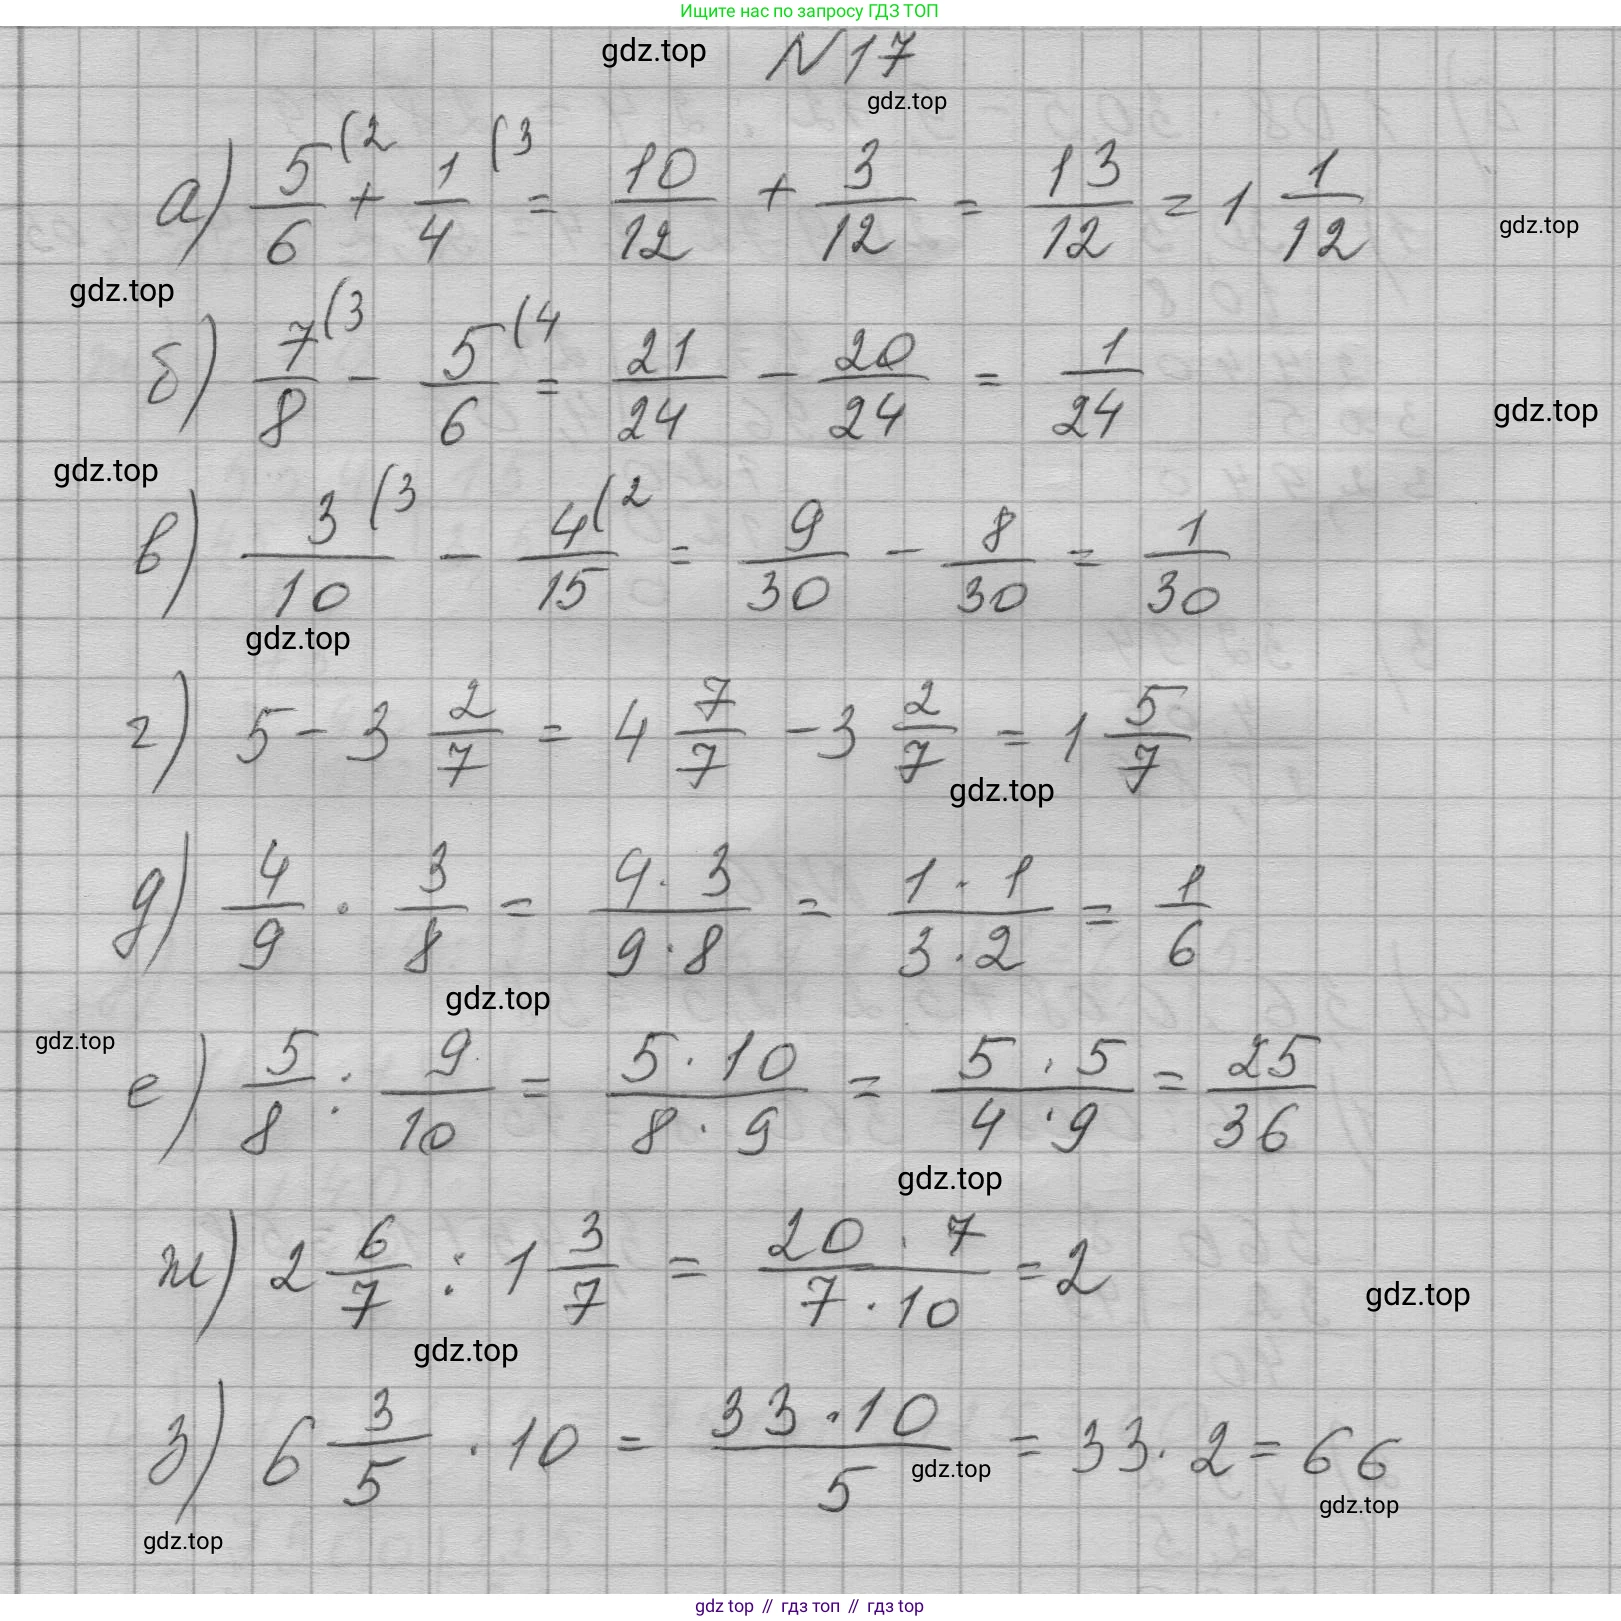 Ищите нас по запросу ГДЗ ТОП
gdz.top N17
gdz.top
а) 5/6 (2 + 1/4 (3 = 10/12 + 3/12 = 13/12 = 1 1/12
gdz.top
gdz.top
б) 7/8 (3 - 5/6 (4 = 21/24 - 20/24 = 1/24
gdz.top
gdz.top
в) 3/10 (3 - 4/15 (2 = 9/30 - 8/30 = 1/30
gdz.top
г) 5 - 3 2/7 = 4 7/7 - 3 2/7 = 1 5/7
gdz.top
д) 4/9 · 3/8 = 4·3/9·8 = 1·1/3·2 = 1/6
gdz.top
gdz.top
е) 5/8 : 9/10 = 5·10/8·9 = 5·5/4·9 = 25/36
gdz.top
ж) 2 6/7 : 1 3/7 = 20·7/7·10 = 2
gdz.top
gdz.top
з) 6 3/5 · 10 = 33·10/5 = 33·2 = 66
gdz.top
gdz.top
gdz.top
gdz top // гдз топ // гдз top